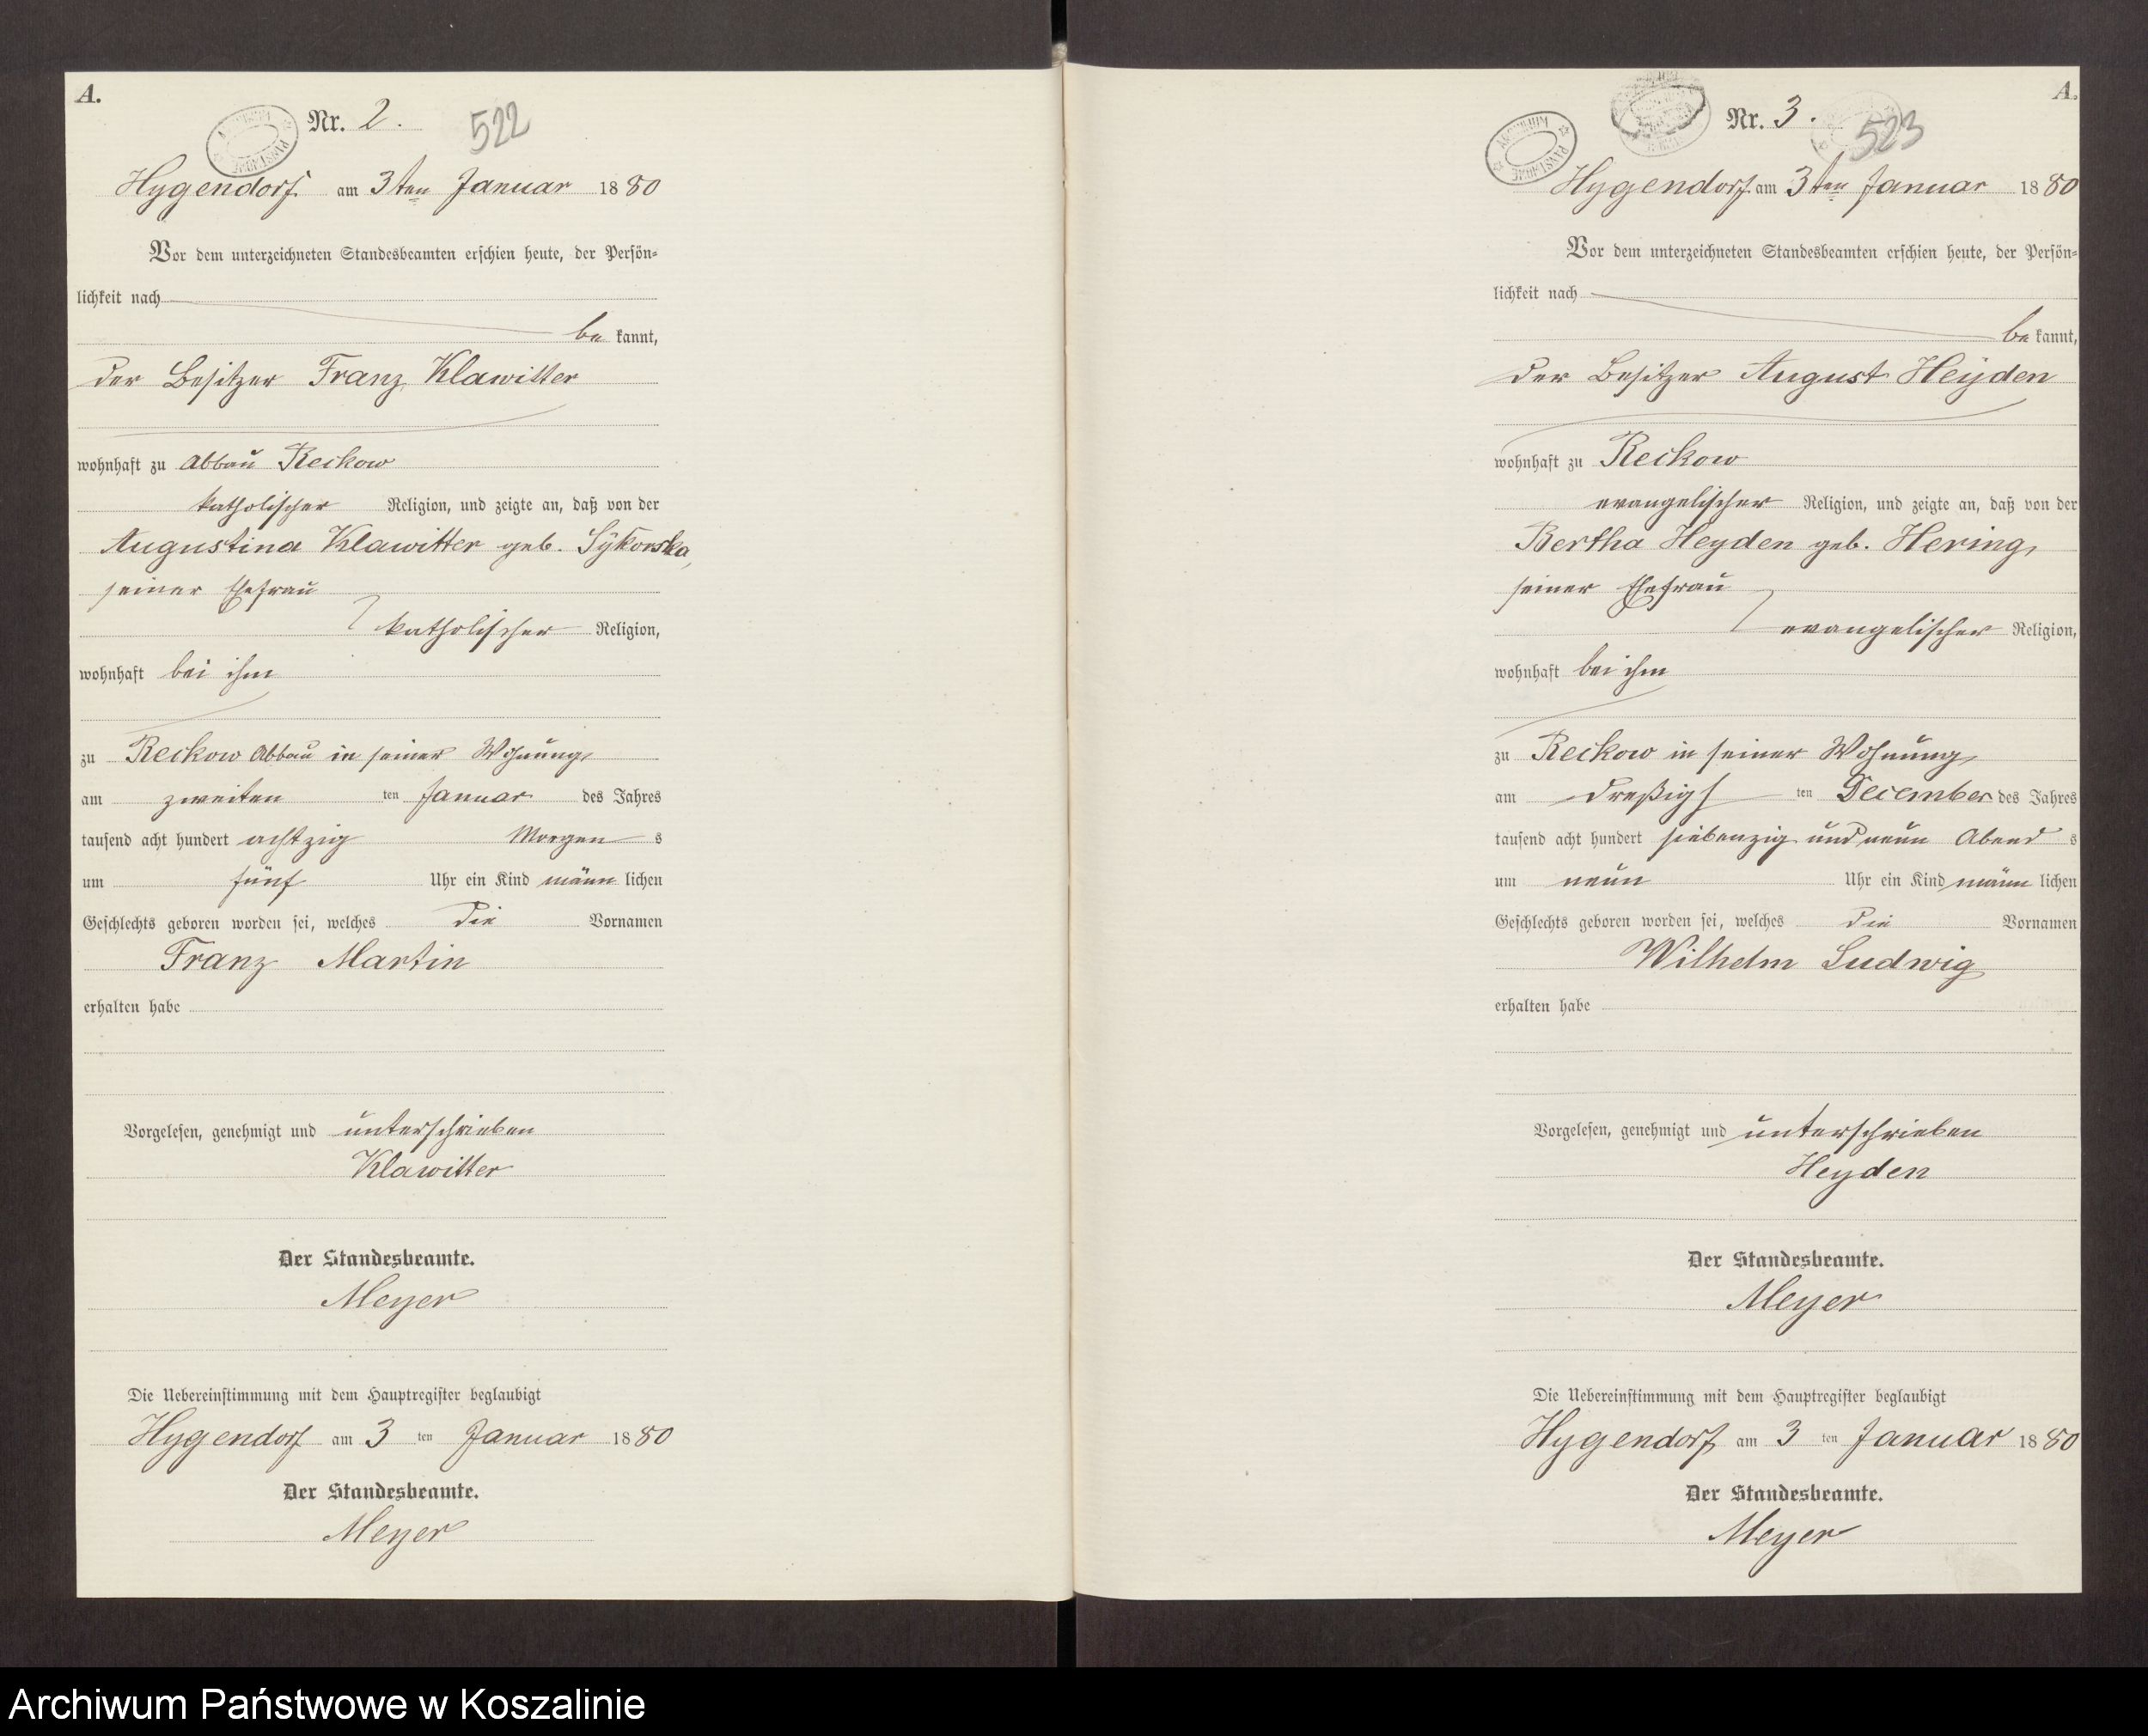 A.
Nr. 2.
522
Hygendorf am 3ten Januar 1880
Vor dem unterzeichneten Standesbeamten erschien heute, der Persön-
lichkeit nach
be kannt,
der Besitzer Franz Klawitter
wohnhaft zu Abbau Reckow
katholischer Religion, und zeigte an, daß von der
Augustina Klawitter geb. Sykorska,
seiner Ehefrau
katholischer Religion,
wohnhaft bei ihm
zu Reckow Abbau in seiner Wohnung,
am zweiten ten Januar des Jahres
tausend acht hundert achtzig Morgen s
um fünf Uhr ein Kind männ lichen
Geschlechts geboren worden sei, welches die Vornamen
Franz Martin
erhalten habe
Vorgelesen, genehmigt und unterschrieben
Klawitter
Der Standesbeamte.
Meyer
Die Uebereinstimmung mit dem Hauptregister beglaubigt
Hygendorf am 3 ten Januar 1880
Der Standesbeamte.
Meyer
A.
Nr. 3.
523
ARCHIWUM PAŃSTWOWE
Hygendorf am 3ten Januar 1880
Vor dem unterzeichneten Standesbeamten erschien heute, der Persön-
lichkeit nach
be kannt,
der Besitzer August Heyden
wohnhaft zu Reckow
evangelischer Religion, und zeigte an, daß von der
Bertha Heyden geb. Hering,
seiner Ehefrau
evangelischer Religion,
wohnhaft bei ihm
zu Reckow in seiner Wohnung,
am dreßigs ten December des Jahres
tausend acht hundert siebenzig und neun Abend s
um neun Uhr ein Kind männ lichen
Geschlechts geboren worden sei, welches die Vornamen
Wilhelm Ludwig
erhalten habe
Vorgelesen, genehmigt und unterschrieben
Heyden
Der Standesbeamte.
Meyer
Die Uebereinstimmung mit dem Hauptregister beglaubigt
Hygendorf am 3 ten Januar 1880
Der Standesbeamte.
Meyer
Archiwum Państwowe w Koszalinie